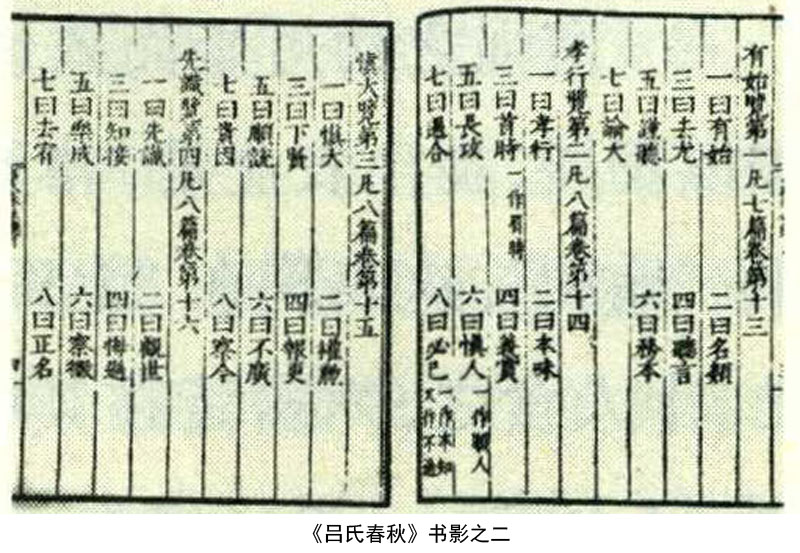 有始覽第一凡七篇卷第十三
一曰有始 二曰名類
三曰去尤 四曰聽言
五曰謹聽 六曰務本
七曰論大
孝行覽第二凡八篇卷第十四
一曰孝行 二曰本味
三曰首時 一作胥時 四曰義賞
五曰長攻 六曰慎人 一作順人
七曰遇合 八曰必己 一作本知 又作不遇
慎大覽第三凡八篇卷第十五
一曰慎大 二曰權勳
三曰下賢 四曰報更
五曰順說 六曰不廣
七曰貴因 八曰察今
先識覽第四凡八篇卷第十六
一曰先識 二曰觀世
三曰知接 四曰悔過
五曰樂成 六曰察微
七曰去宥 八曰正名
《吕氏春秋》书影之二